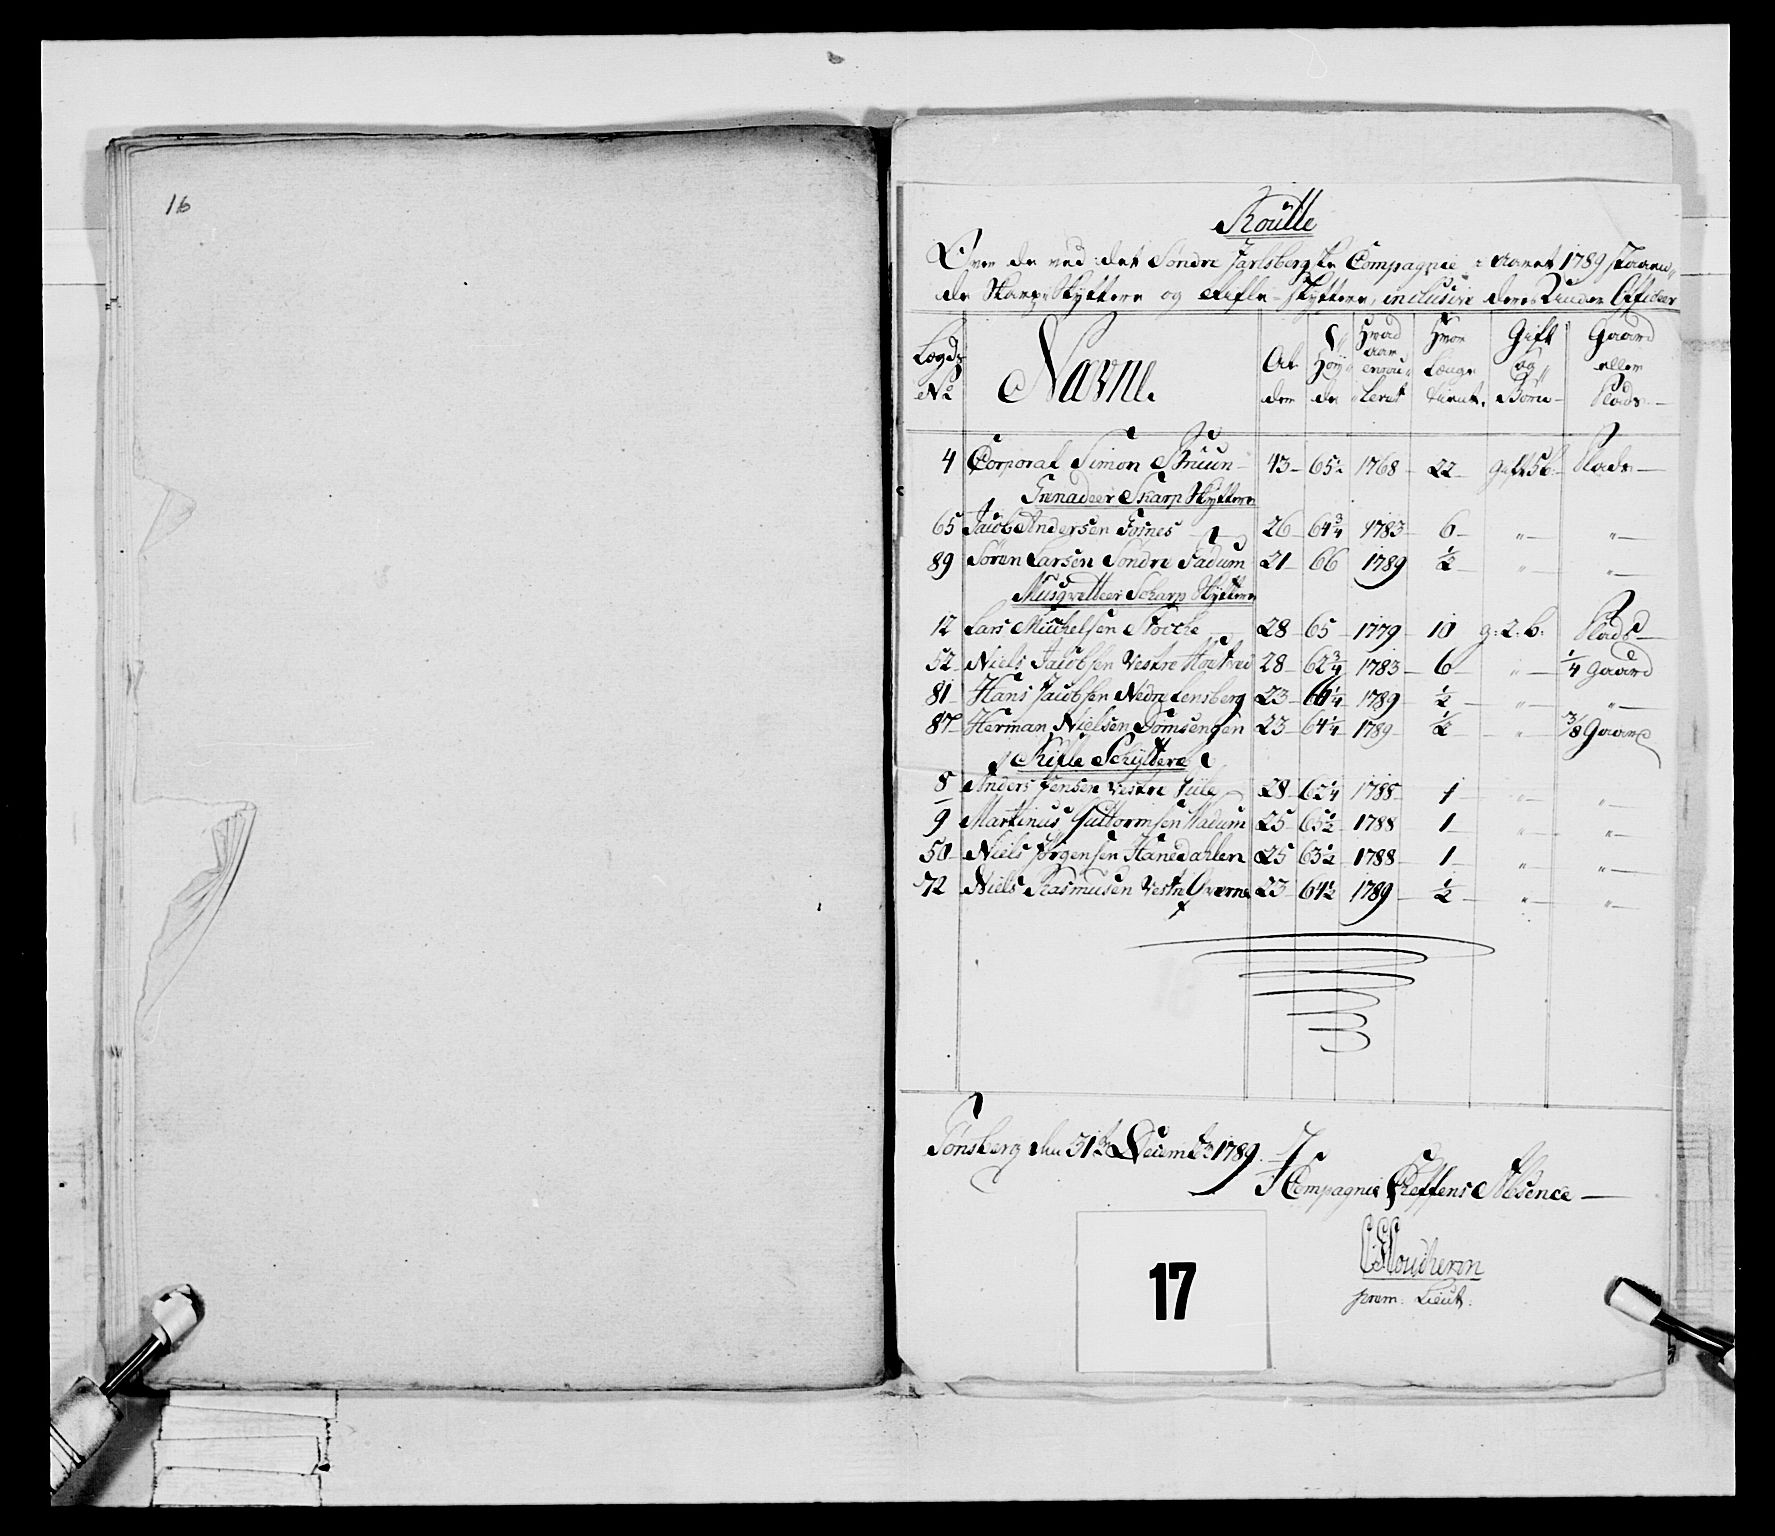 16
Roulle
Over de ved det Søndre Jarlsbergske Compagnie i Aaret 1789 staaen„
de Skarp Skyttere og Rifle-Skyttere, inclusive deres Under Officeer
Lægds No Navne. Al der Høy„ de Hvad Aar enrou„ leret Hvor Længe tient. Gift og Børn Gaard eller Plads
4 Corporal Simon Struun 43 65½ 1768 22 gift 5 b. Plads
Grenadeer Skarp Skyttere
65 Jacob Andersen Fosnes 26 64¾ 1783 6 „ „
89 Søren Larsen Søndre Sadum 21 66 1789 ½ „ „
Musqvetteer Scharp Skyttere
12 Lars Michelsen Stocke 28 65 1779 10 g: 2. b: Plads
52 Niels Jacobsen Vestre 28 62¾ 1783 6 „ ¼ Gaard
81 Hans Jacobsen Nedre Lensberg 23 1789 ½ „ „
87 Herman Nielsen Domsengen 23 64¼ 1789 ½ „ ⅜ Gaard
Rifle Schyttere
8 Anders Jensen Vestre 28 62¼ 1788 1 „ „
9 Martinus Guttormsen 25 65½ 1788 1 „ „
50 Niels Jørgensen Hanedahlen 25 63½ 1788 1 „ „
72 Niels Rasmusen Vestre 23 64½ 1789 ½ „ „
Tønsberg den 31te Decembr 1789.
I Compagnie Cheffens Absence
prem: Lieut:
17